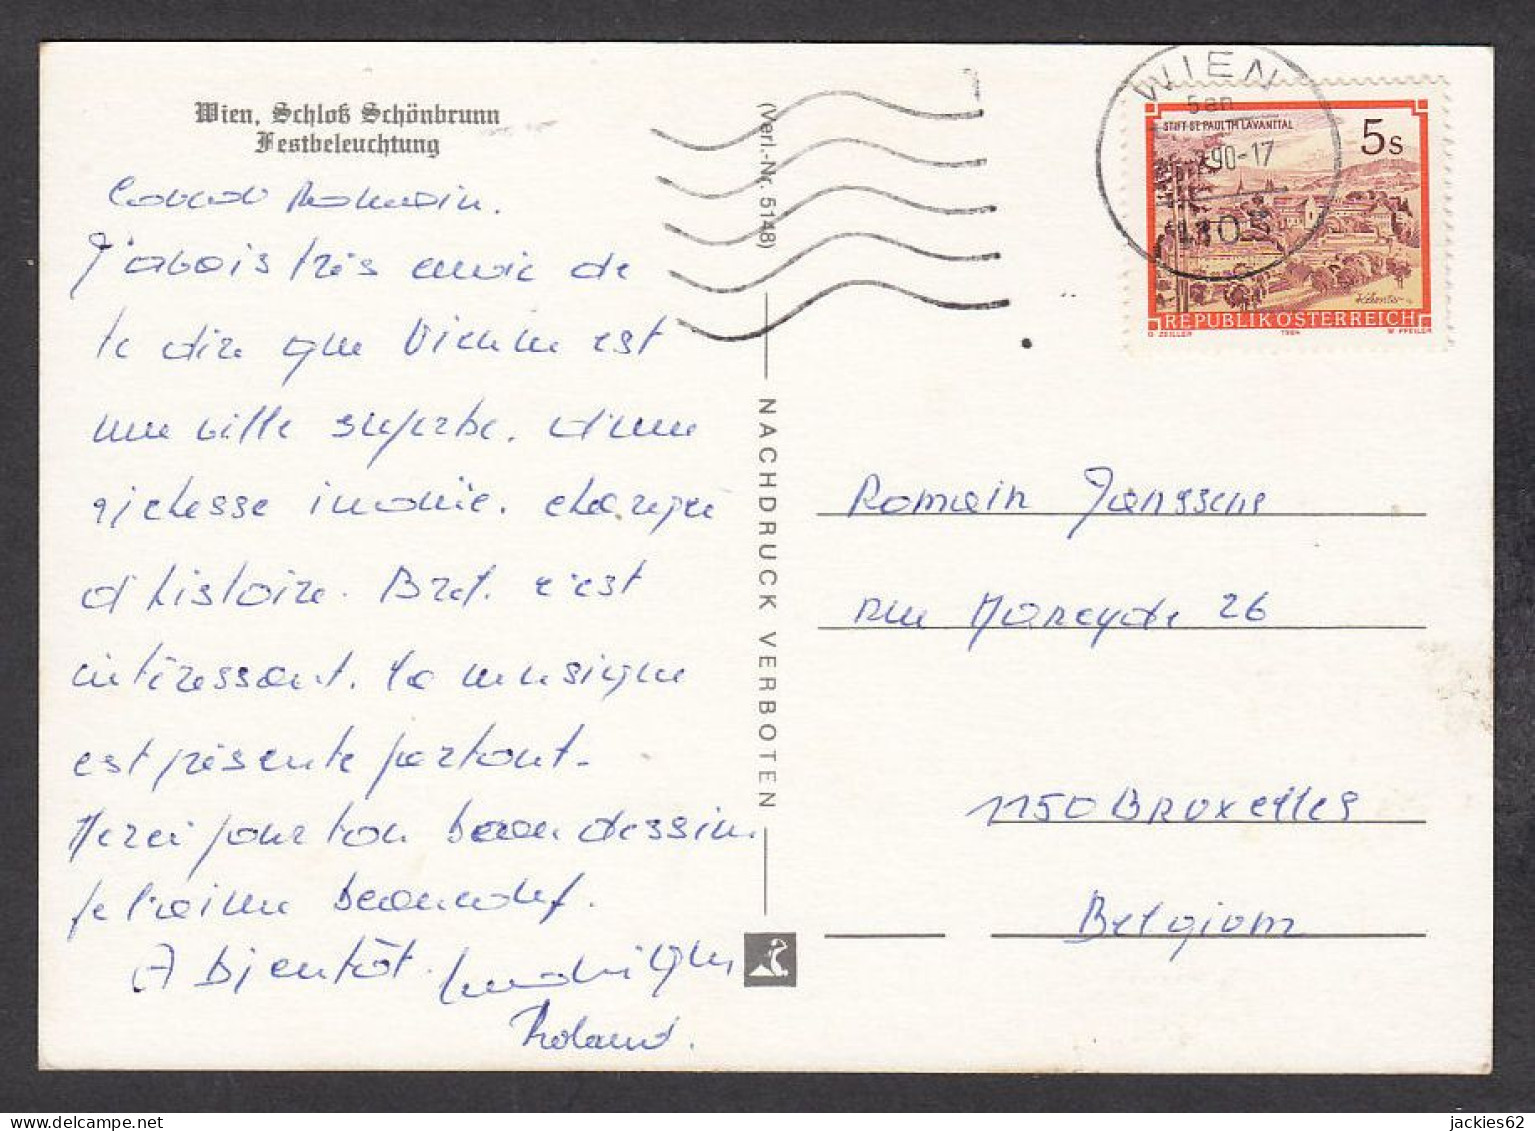 Wien, Schloß Schönbrunn
Festbeleuchtung
Romain.
J'avais très envie de
te dire que Vienne est
une ville superbe. d'une
richesse inouïe. chargée
d'histoire. Bref. c'est
intéressant. La musique
est présente partout.
Merci pour ton beau dessin
je l'aime beaucoup.
A bientôt.
Roland.
(Verl.-Nr. 5148)
NACHDRUCK VERBOTEN
WIEN
90-17
STIFT ST. PAUL IM LAVANTTAL
5 S
REPUBLIK ÖSTERREICH
O. ZEILLER 1984 W. PFEILER
Romain Janssens
rue Marcyde 26
1150 BRUXELLES
Belgium
jackies62